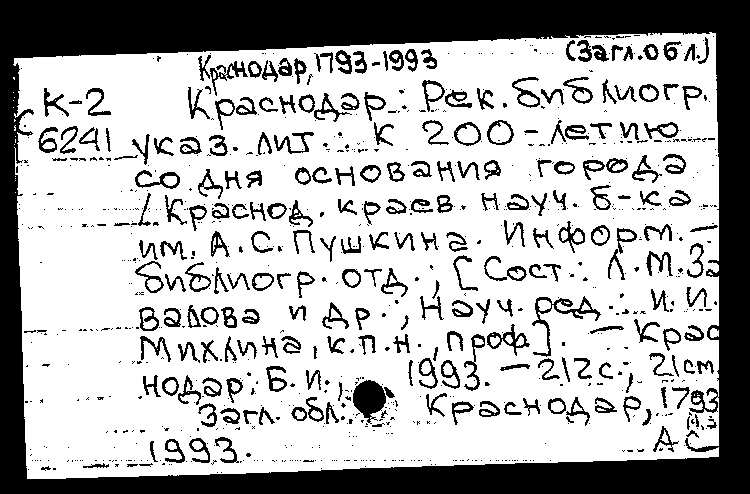 Краснодар, 1793-1993 (Загл. обл.)
К-2 Краснодар: Рек. библиогр.
С 6241 указ. лит.: К 200-летию
со дня основания города
/ Краснод. краев. науч. б-ка
им. А.С. Пушкина. Информ.-
библиогр. отд.; [Сост.: Л.М. За
валова и др.; Науч. ред.: И.И.
Михлина, к.п.н., проф]. — Крас
нодар: Б.И., 1993. — 212 с.; 21 см.
Загл. обл.: Краснодар, 1793
1993. АС